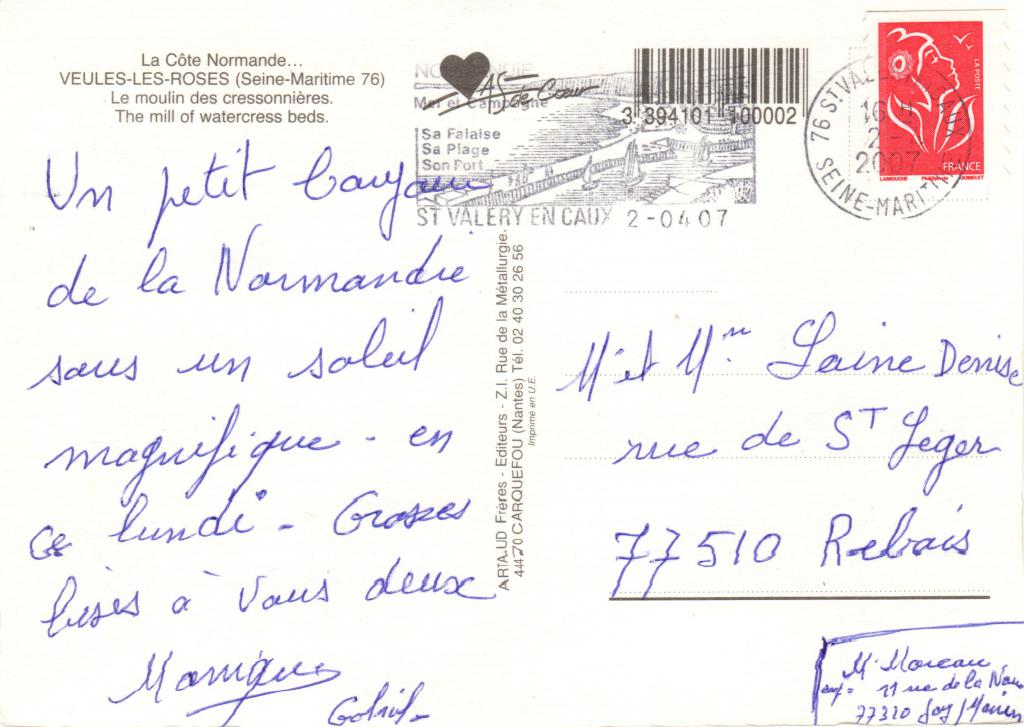 La Côte Normande...
VEULES-LES-ROSES (Seine-Maritime 76)
Le moulin des cressonnières.
The mill of watercress beds.
NORMANDIE
AS de Cœur
Mer et Campagne
Sa Falaise
Sa Plage
Son Port
ST VALERY EN CAUX 2-04 07
3 394101 100002
76 ST VALERY EN CAUX
16 H
2 - 4
2007
SEINE-MARITIME
LA POSTE
FRANCE
LAMOUCHE
Un petit
de la Normandie
sous un soleil
magnifique - en
ce lundi - Grosses
bises à vous deux
Monique
ARTAUD Frères - Editeurs - Z.I. Rue de la Métallurgie.
44470 CARQUEFOU (Nantes) Tél. 02 40 30 26 56
Imprimé en U.E.
Mr et Mme Laine Denise
rue de ST Leger
77510 Rebais
Mr Moreau
11 rue de la
77310